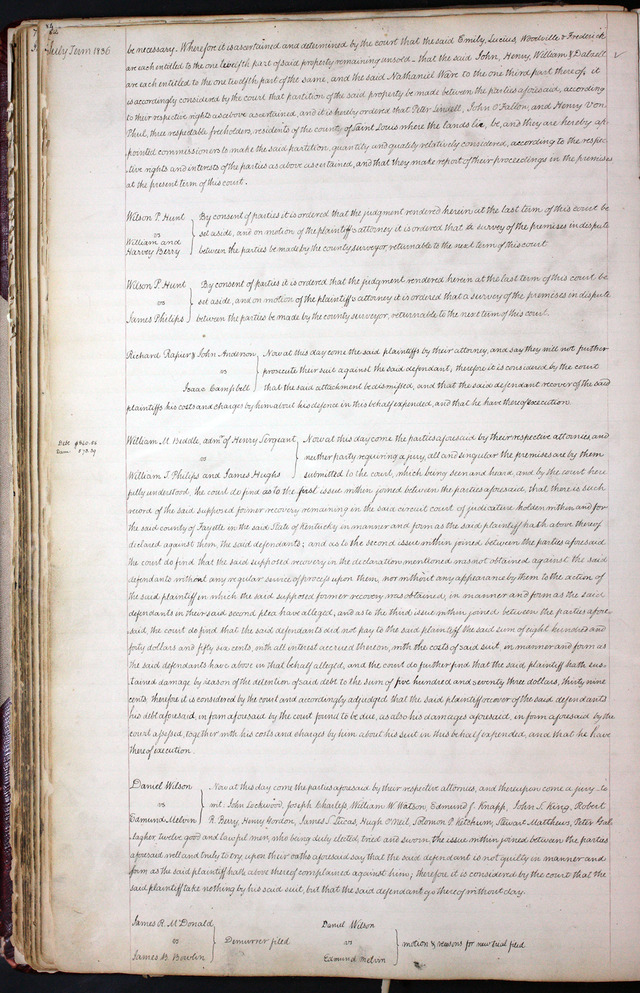 July Term 1836
be necessary. Wherefore it is ascertained and determined by the court that the said Emily, Lucius, Woodville & Frederick
are each entitled to the one twelfth part of said property remaining unsold – that the said John, Henry, William & Dabzell
are each entitled to the one twelfth part of the same, and the said Nathaniel Ware to the one third part thereof, it
is accordingly considered by the court that partition of the said property be made between the parties aforesaid, according
to their respective rights as above ascertained, and it is hereby ordered that Peter Lindell, John O'Fallon, and Henry Von
Phul, three respectable freeholders, residents of the county of Saint Louis where the lands lie, be, and they are hereby ap-
pointed commissioners to make the said partition, quantity and quality relatively considered, according to the respec-
tive rights and interests of the parties as above ascertained, and that they make report of their proceedings in the premises
at the present term of this court.
Wilson P. Hunt
vs
William and
Harvey Berry
By consent of parties it is ordered that the judgment rendered herein at the last term of this court be
set aside, and on motion of the plaintiff's attorney it is ordered that a survey of the premises in dispute
between the parties be made by the county surveyor returnable to the next term of this court
Wilson P. Hunt
vs
James Philips
By consent of parties it is ordered that the judgment rendered herein at the last term of this court be
set aside, and on motion of the plaintiff's attorney it is ordered that a survey of the premises in dispute
between the parties be made by the county surveyor, returnable to the next term of this court.
Richard Rapier & John Anderson
vs
Isaac Campbell
Now at this day come the said plaintiffs by their attorney, and say they will not further
prosecute their suit against the said defendant, therefore it is considered by the court
that the said attachment be dismissed, and that the said defendant recover of the said
plaintiffs his costs and charges by him about his defence in this behalf expended, and that he have thereof execution.
Debt $840.56
Dam: 573.39
William M. Biddle, admr. of Henry Sergeant
vs
William T. Philips and James Hughs
Now at this day come the parties aforesaid by their respective attornies and
neither party requiring a jury, all and singular the premises are by them
submitted to the court, which being seen and heard, and by the court here
fully understood, the court do find as to the first issue within joined between the parties aforesaid, that there is such
record of the said supposed former recovery remaining in the said circuit court of judicature holden within and for
the said county of Fayette in the said State of Kentucky in manner and form as the said plaintiff hath above thereof
declared against them, the said defendants; and as to the second issue within joined between the parties aforesaid
the court do find that the said supposed recovery in the declaration mentioned was not obtained against the said
defendants without any regular service of process upon them, nor without any appearance by them to the action of
the said plaintiff in which the said supposed former recovery was obtained, in manner and form as the said
defendants in their said second plea have alleged, and as to the third issue within joined between the parties afore-
said, the court do find that the said defendants did not pay to the said plaintiff the said sum of eight hundred and
forty dollars and fifty six cents, with all interest accrued thereon, with the costs of said suit, in manner and form as
the said defendants have above in that behalf alleged, and the court do further find that the said plaintiff hath sus-
tained damage by reason of the detention of said debt to the sum of five hundred and seventy three dollars, thirty nine
cents, therefore it is considered by the court and accordingly adjudged that the said plaintiff recover of the said defendants
his debt aforesaid, in form aforesaid by the court found to be due, as also his damages aforesaid, in form aforesaid by the
court assessed, together with his costs and charges by him about his suit in this behalf expended, and that he have
thereof execution.
Daniel Wilson
vs
Edmund Melvin
Now at this day come the parties aforesaid by their respective attornies, and thereupon come a jury to
wit: John Lockwood, Joseph Charless, William W. Watson, Edmund J. Knapp, John S. King, Robert
R. Berry, Henry Hordon, James S. Lucas, Hugh O'Neil, Solomon P. Ketchum, Stewart Matthews, Peter Gal-
lagher, twelve good and lawful men, who being duly elected, tried and sworn the issue within joined between the parties
aforesaid well and truly to try, upon their oaths aforesaid say that the said defendant is not guilty in manner and
form as the said plaintiff hath above thereof complained against him; therefore it is considered by the court that the
said plaintiff take nothing by his said suit, but that the said defendant go thereof without day.
James R. McDonald
vs
James B. Bowlin
Demurrer filed
Daniel Wilson
vs
Edmund Melvin
motion & reasons for new trial filed